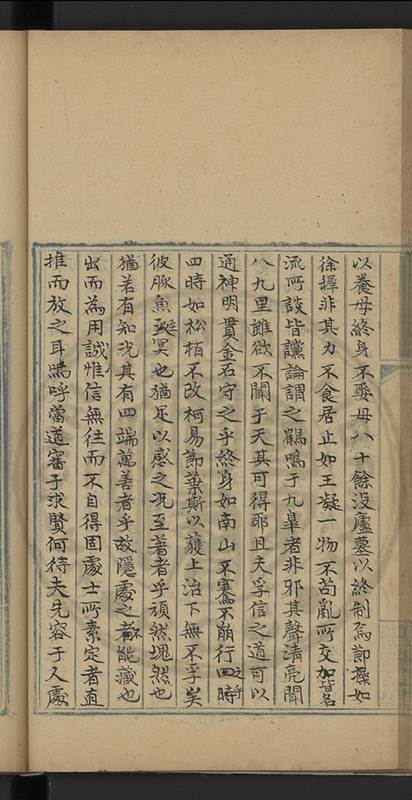 以養母終身不娶母八十餘没廬墓以終制爲節操如
徐穉非其力不食居止如王凝一物不苟亂所交加皆名
流所談皆讜論謂之鶴鳴于九皋者非邪其聲清亮聞
八九里雖欲不聞于天其可得耶且夫孚信之道可以
通神明貫金石守之乎終身如南山不騫不崩行之乎四時
四時如松栢不改柯易節葉斯以䕶上治下無不孚矣
彼豚魚冥也猶足以感之况至著者乎頑然塊然也
猶若有知况其有四端萬善者乎故隱處之者不能藏也
出而為用誠惟信無往而不自得固處士所素定者直
推而放之耳嗚呼當道審于求賢何待夫先容于久處